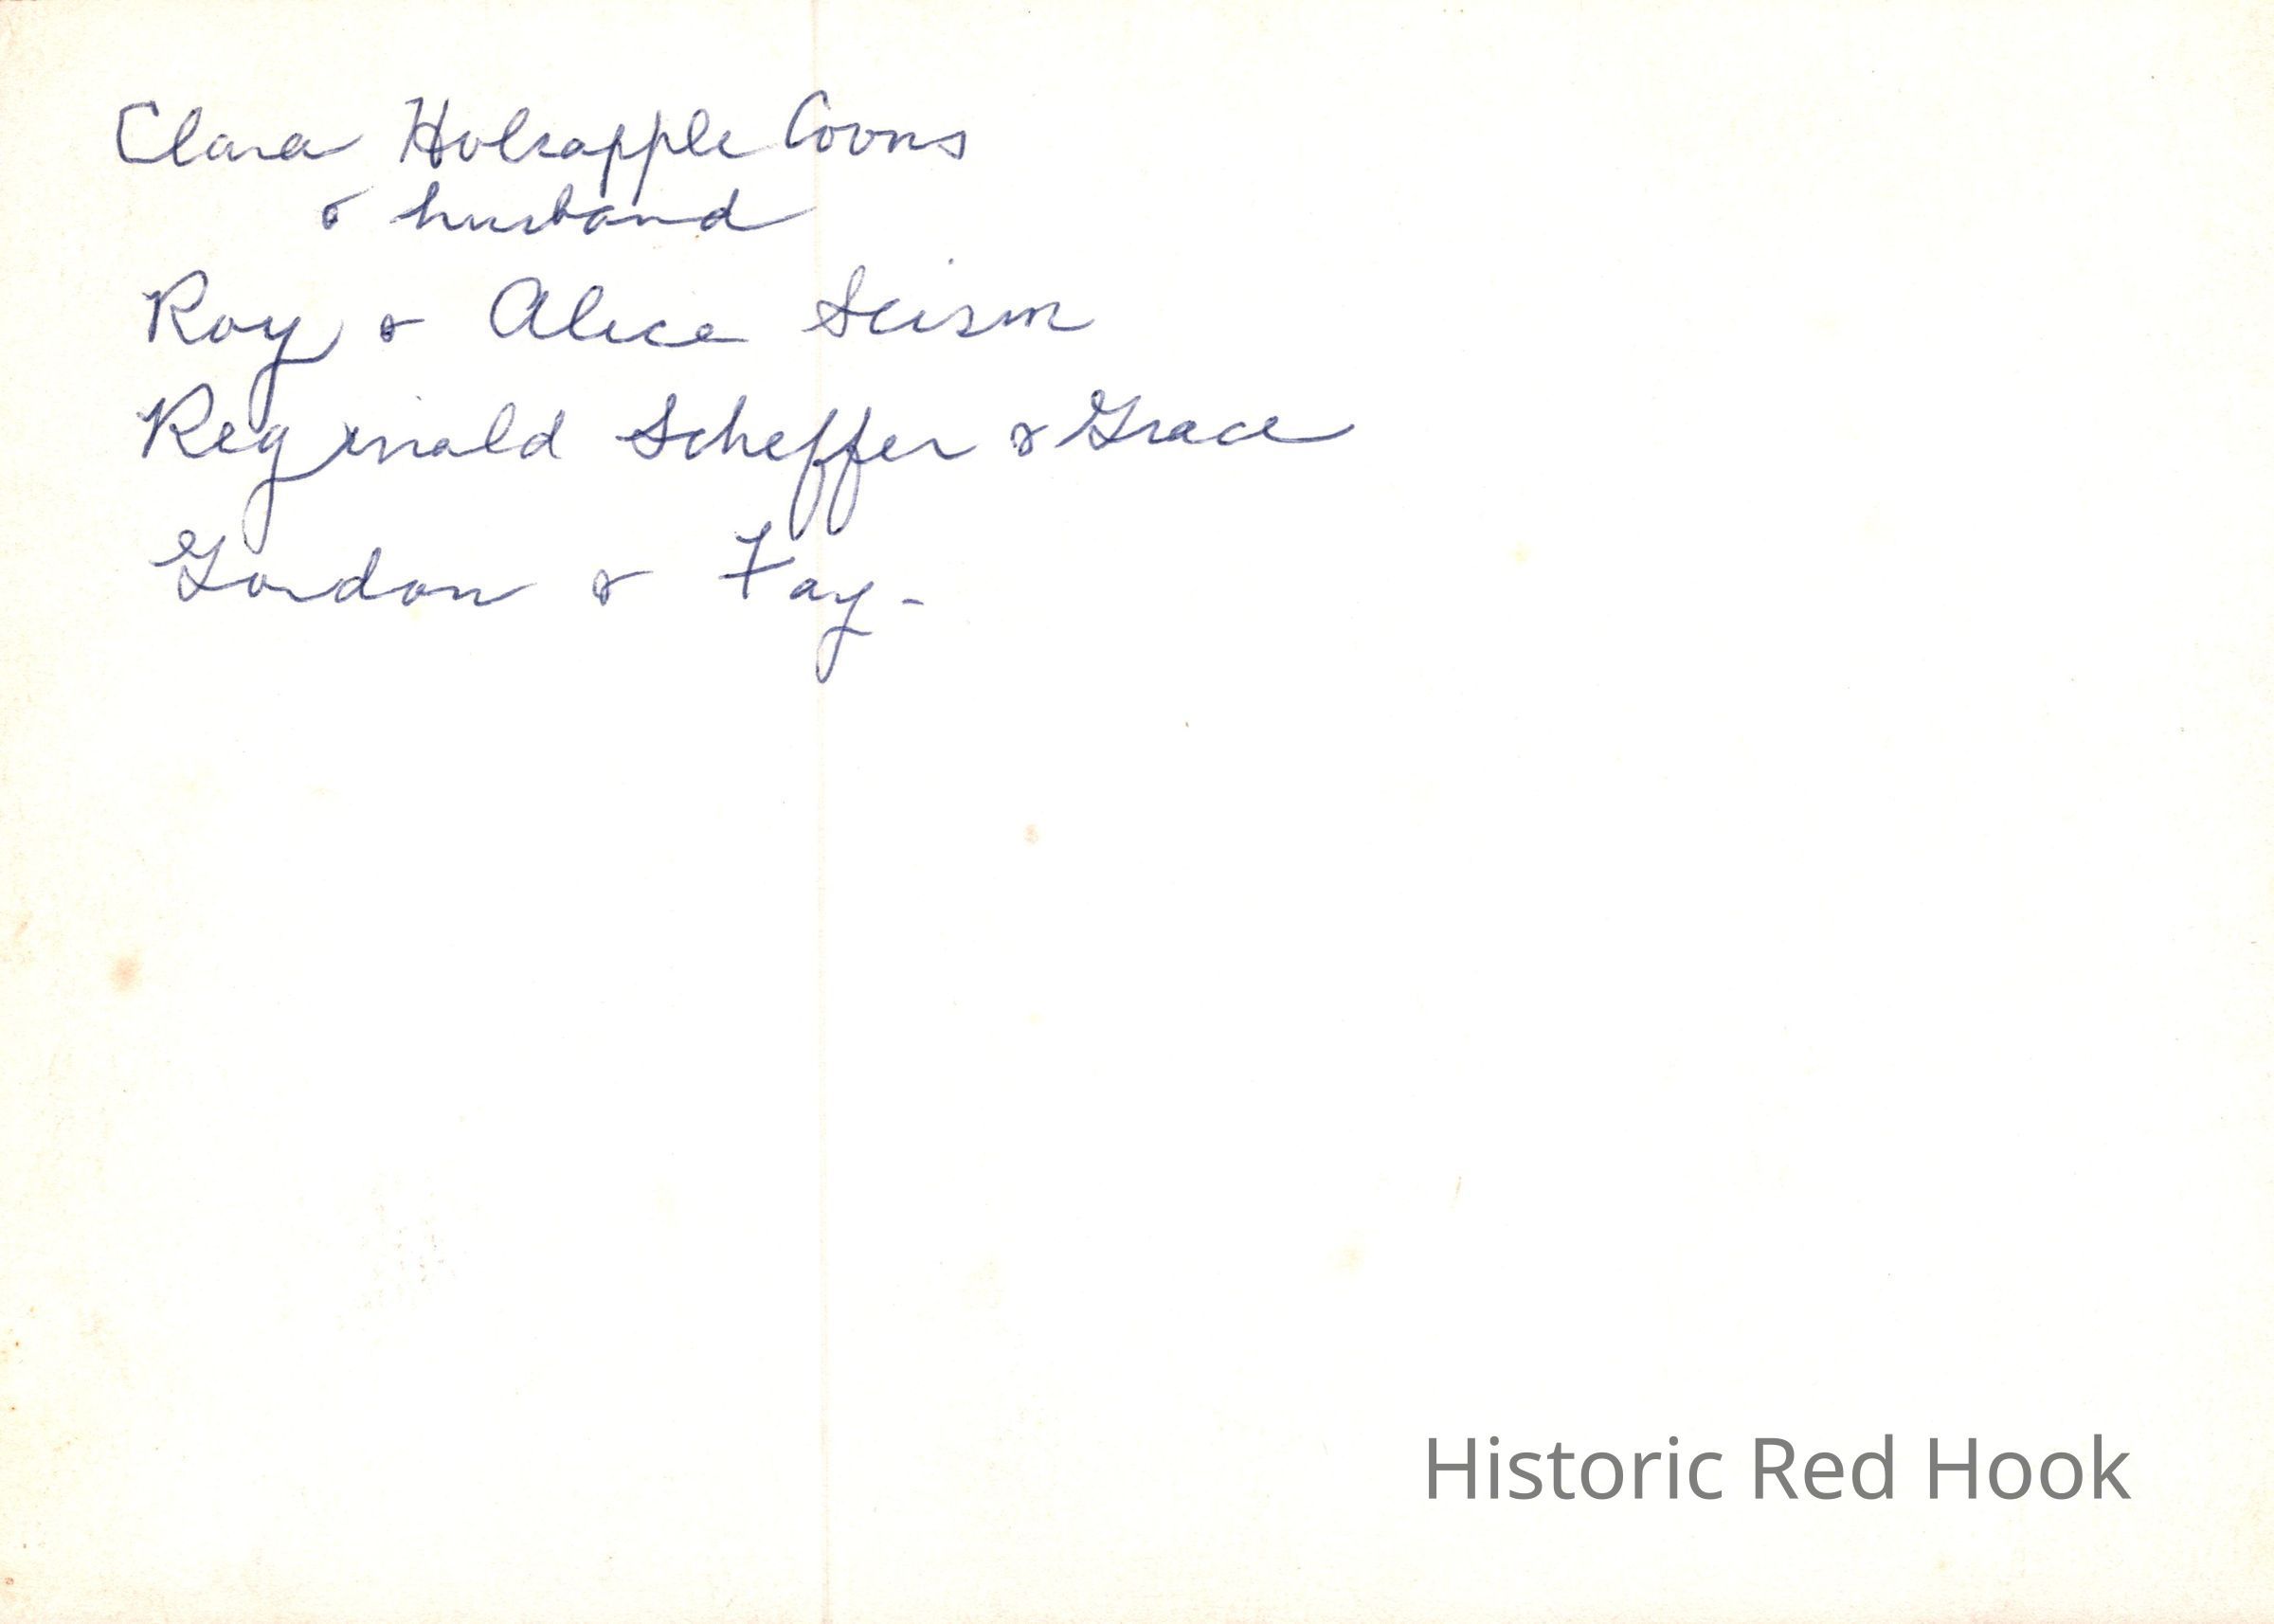 Clara Holsapple Coons
& husband
Roy & Alice Scism
Reginald Scheffer & Grace
Gordon & Fay -
Historic Red Hook